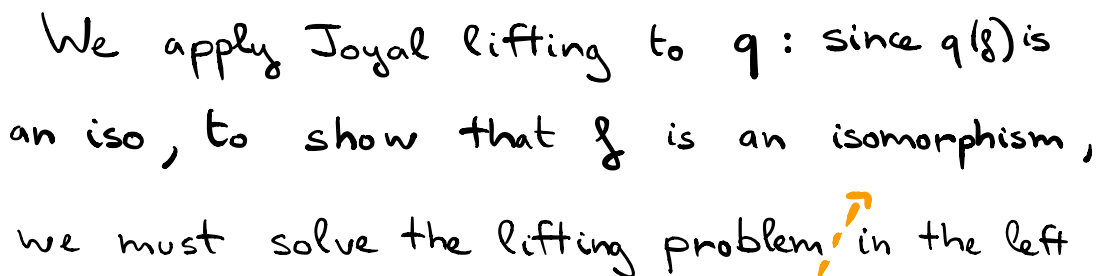 We apply Joyal lifting to q : since q(f) is
an iso, to show that f is an isomorphism,
we must solve the lifting problem in the left